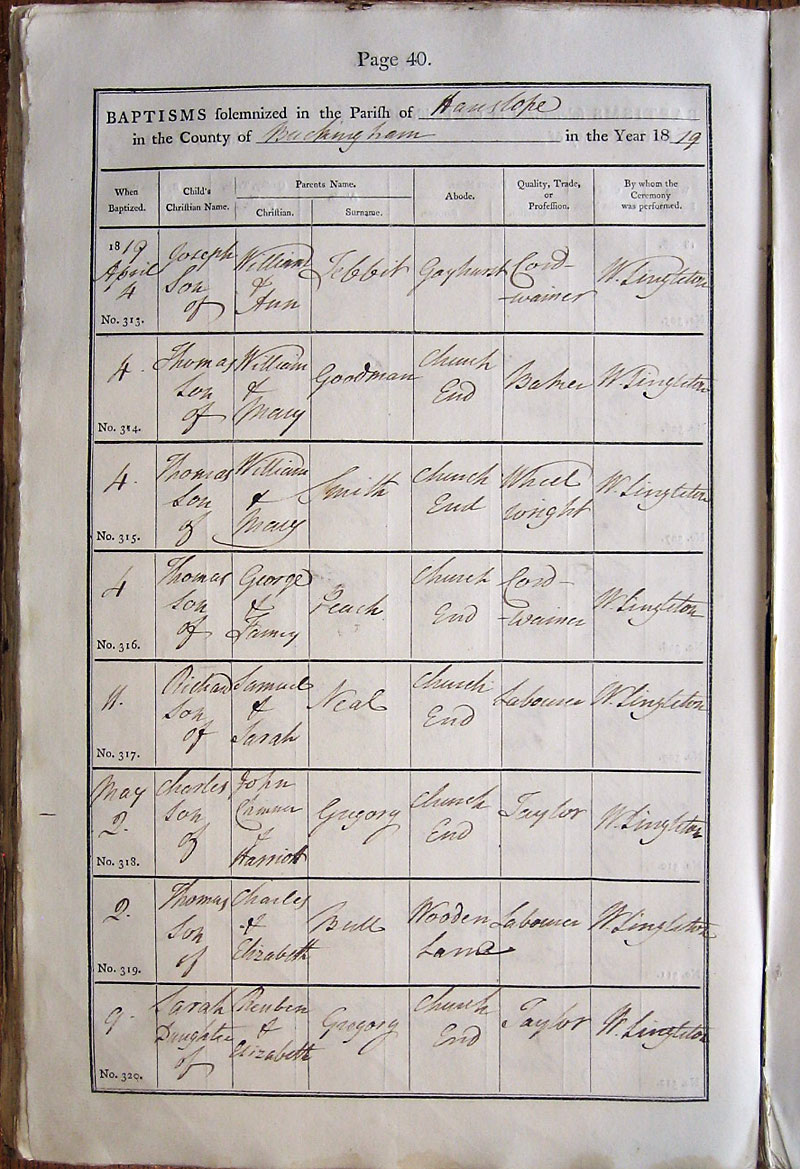 Page 40.
BAPTISMS solemnized in the Parish of Hanslope
in the County of Buckingham in the Year 1819
When Baptized. Child's Christian Name. Parents Name. Abode. Quality, Trade, or Profession. By whom the Ceremony was performed.
Christian. Surname.
1819 April 4 Joseph Son of William & Ann Tebbit Gayhurst Cord-wainer W. Singleton
No. 313.
4. Thomas Son of William & Mary Goodman Church End Baker W. Singleton
No. 314.
4. Thomas Son of William & Mary Smith Church End Wheel wright W. Singleton
No. 315.
4 Thomas Son of George & Fanny Church End Cord-wainer W. Singleton
No. 316.
11. Richard Son of Samuel & Sarah Neal Church End Labourer W. Singleton
No. 317.
May 2. Charles Son of John & Harriott Gregory Church End Taylor W. Singleton
No. 318.
2. Thomas Son of Charles & Elizabeth Bull Wooden Lane Labourer W. Singleton
No. 319.
9. Sarah Daughter of Reuben & Elizabeth Gregory Church End Taylor W. Singleton
No. 320.